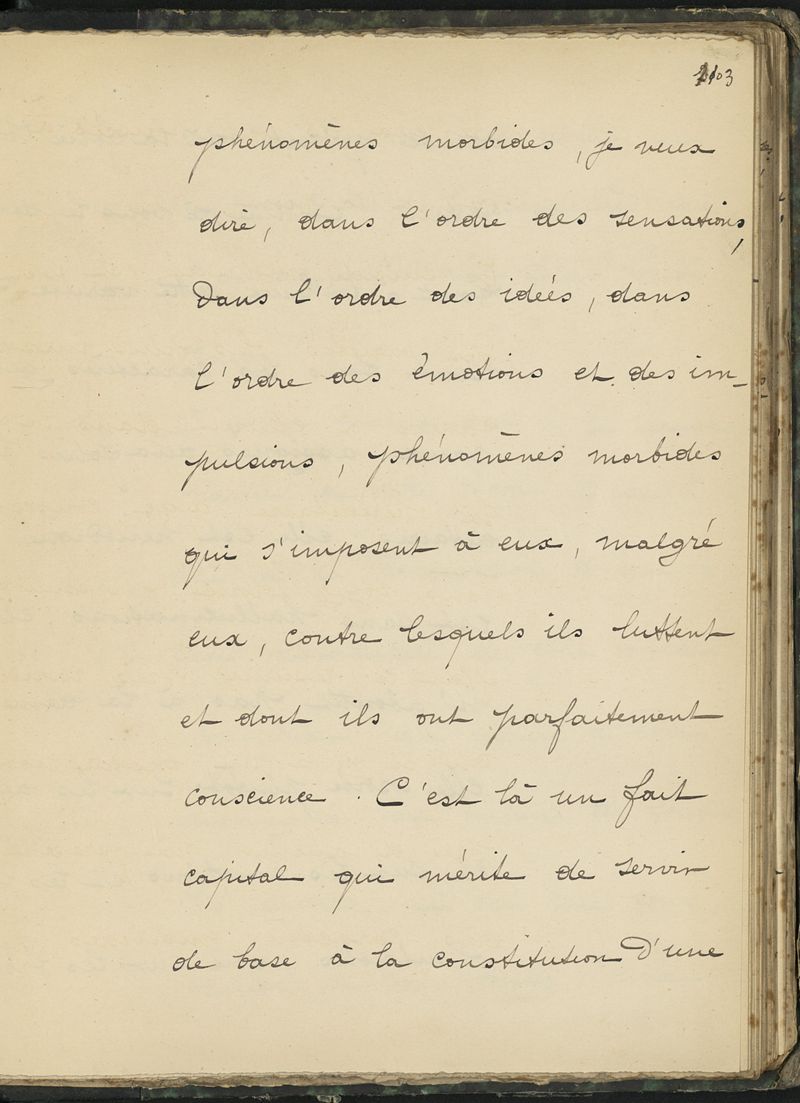 phénomènes morbides, je veux
dire, dans l'ordre des sensations,
dans l'ordre des idées, dans
l'ordre des émotions et des im-
pulsions, phénomènes morbides
qui s'imposent à eux, malgré
eux, contre lesquels ils luttent
et dont ils ont parfaitement
conscience. C'est là un fait
capital qui mérite de servir
de base à la constitution d'une